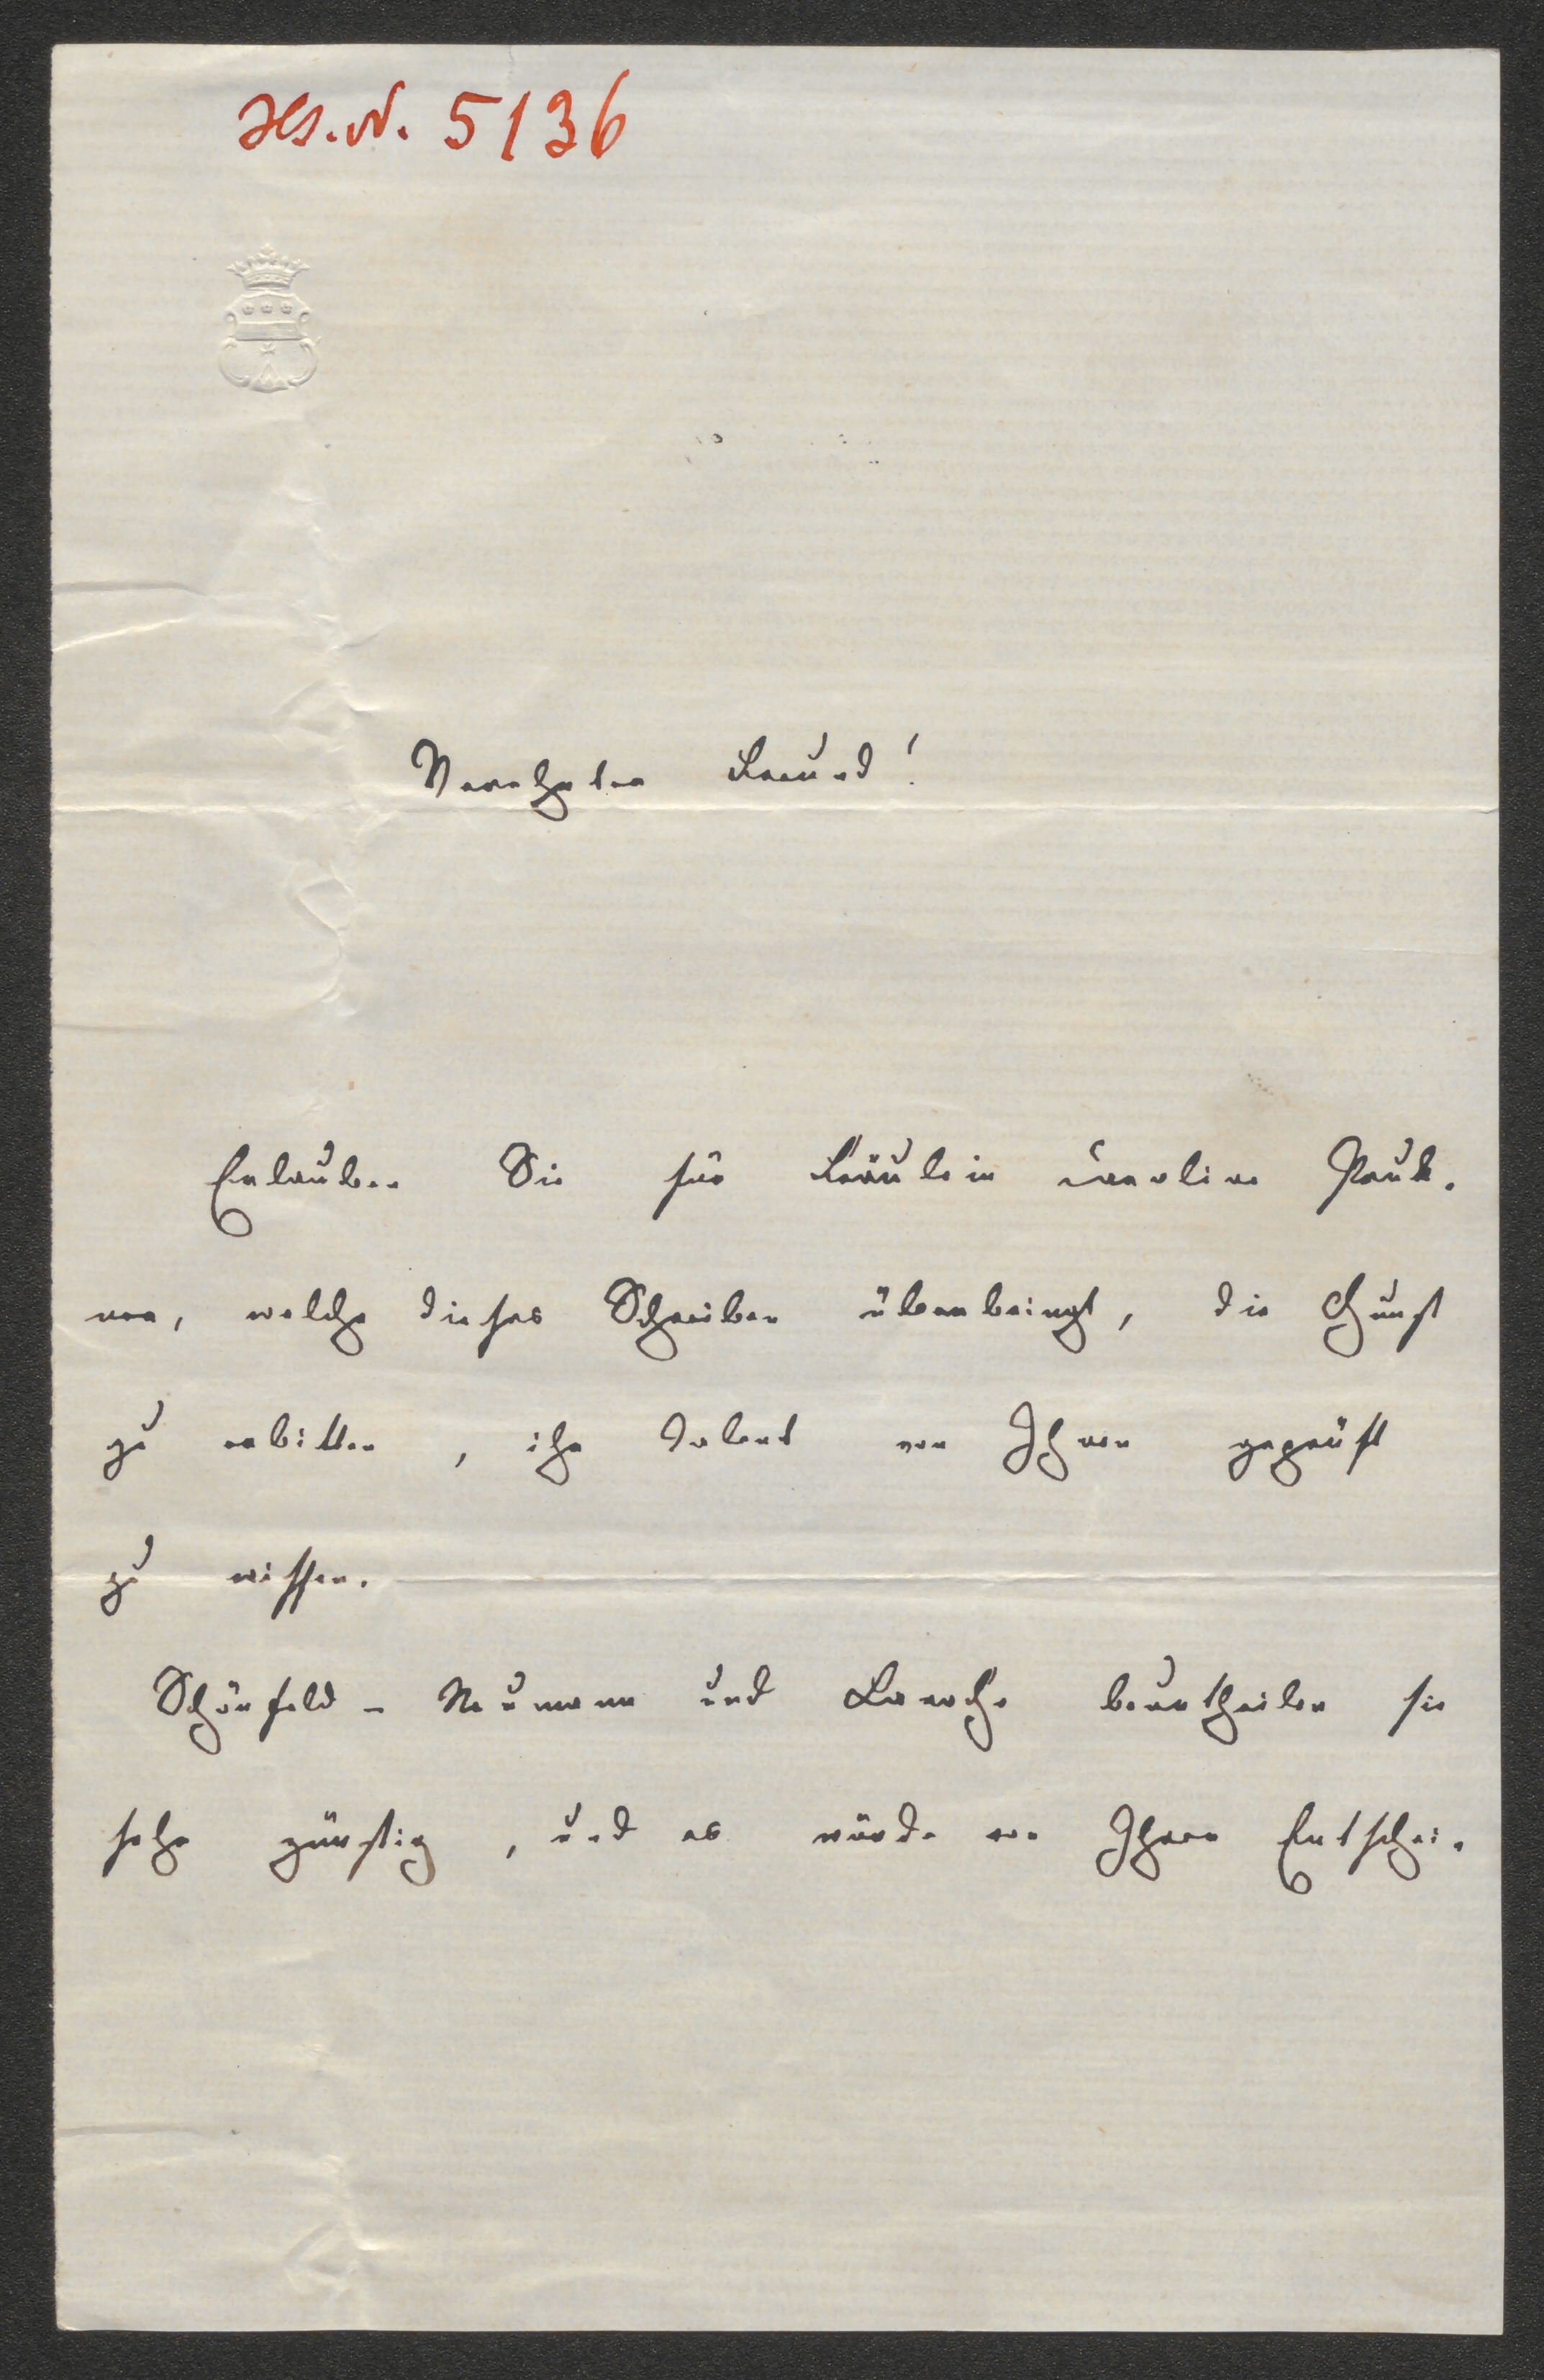 Hs. N. 5136
Verehrter Freund!
Erlauben Sie für Fräulein Caroline
welche dieses Schreiben überbringt, die Gunst
zu erbitten, ihr Talent von Ihnen geprüft
zu wissen.
Schönfeld-Neumann und Laroche beurtheilen sie
sehr günstig, und es würde von Ihrer Entschei-